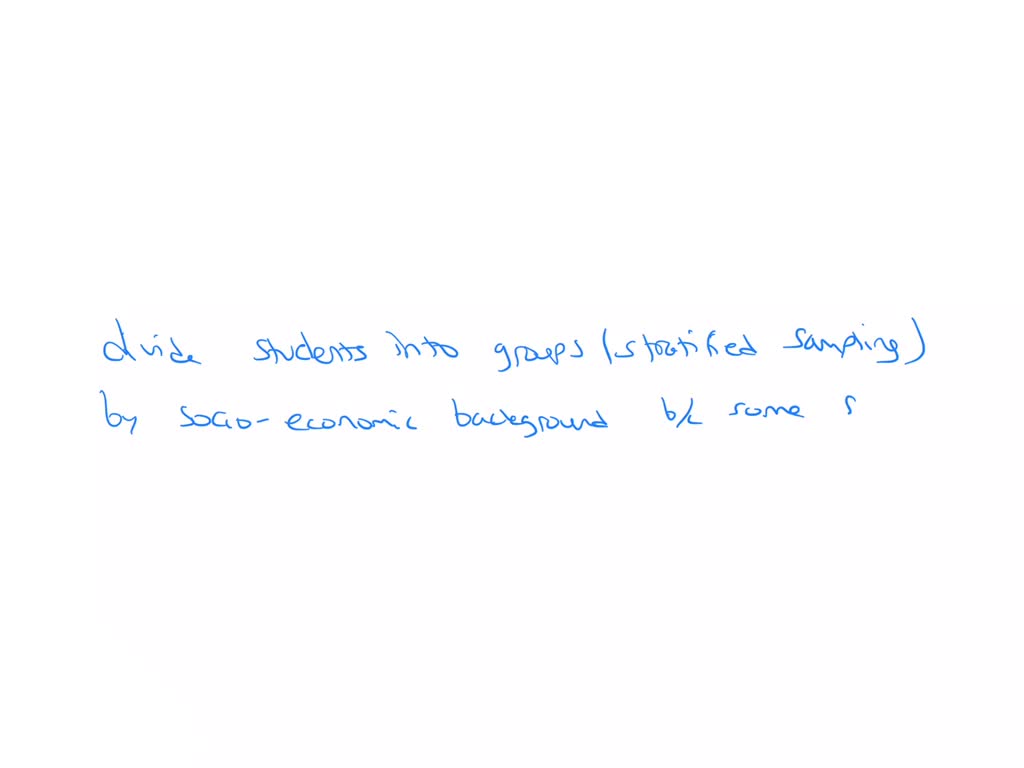 divide students into groups (stratified sampling)
by socio-economic background b/c some s